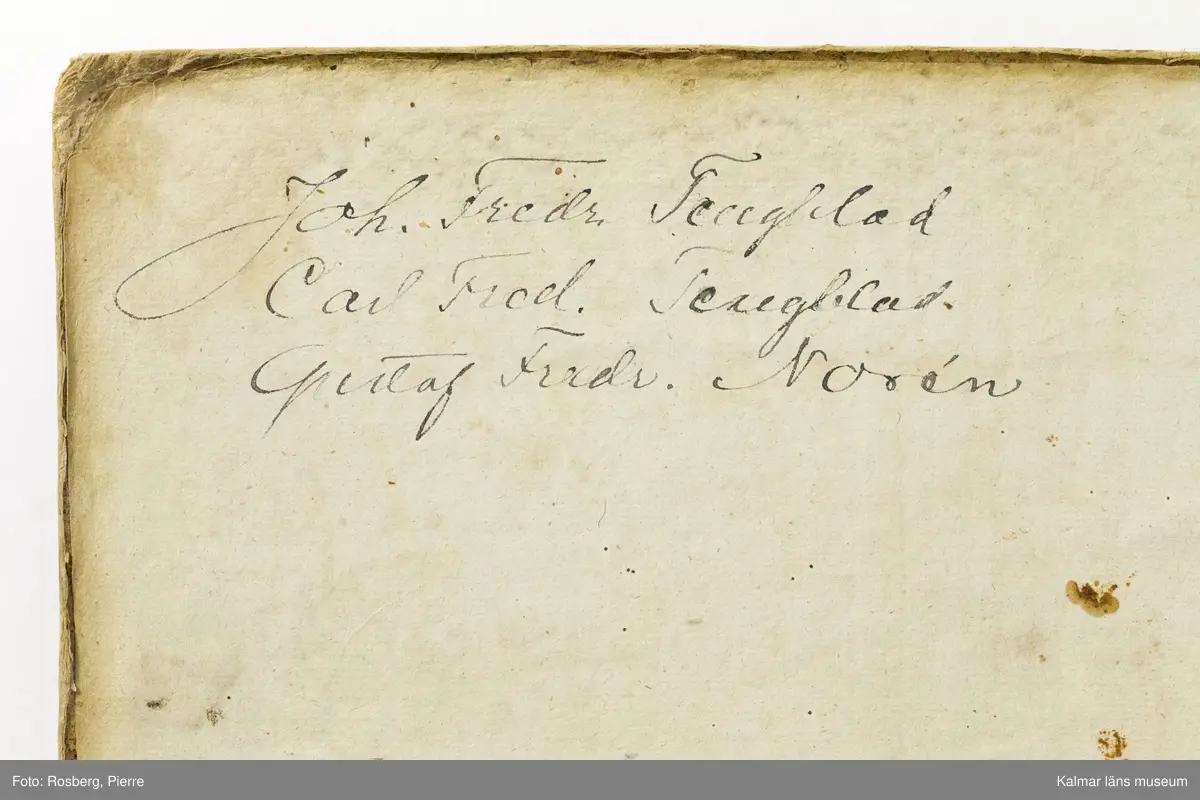 Joh. Fredr. Tengblad
Carl Fred. Tengblad.
Gustaf Fredr. Norén
Foto: Rosberg, Pierre
Kalmar läns museum